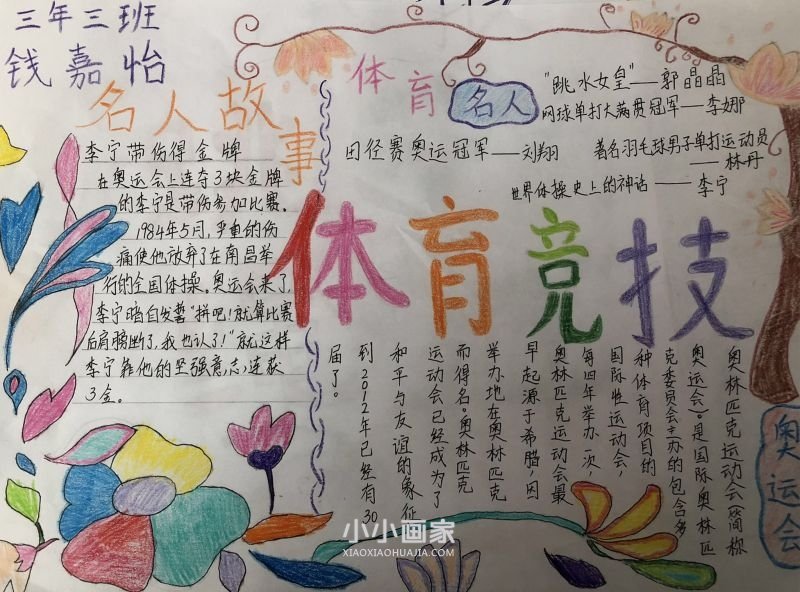 三年三班
钱嘉怡
名人故事
李宁带伤得金牌
在奥运会上连夺3块金牌
的李宁是带伤参加比赛。
1984年5月,严重的伤
痛使他放弃了在南昌举
行的全国体操。奥运会来了,
李宁暗自发誓"拼吧!就算比赛
后肩骑断了,我也认了!"就这样
李宁靠他的坚强意志,连获
3金。
体育
名人
"跳水女皇"——郭晶晶
网球单打大满贯冠军——李娜
田径赛奥运冠军——刘翔
著名羽毛球男子单打运动员
——林丹
世界体操史上的神话——李宁
体育竞技
奥林匹克运动会(简称
奥运会)。是国际奥林匹
克委员会主办的包含多
种体育项目的
国际性运动会,
每四年举办一次,
奥林匹克运动会最
早起源于希腊,因
举办地在奥林匹克
而得名。奥林匹克
运动会已经成为了
和平与友谊的象征
到2012年已经有30
届了。
奥运会
小小画家
XIAOXIAOHUAJIA.COM